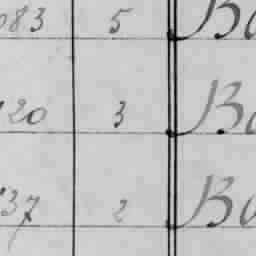 083 5 Ba
120 3 Ba
37 2 Ba